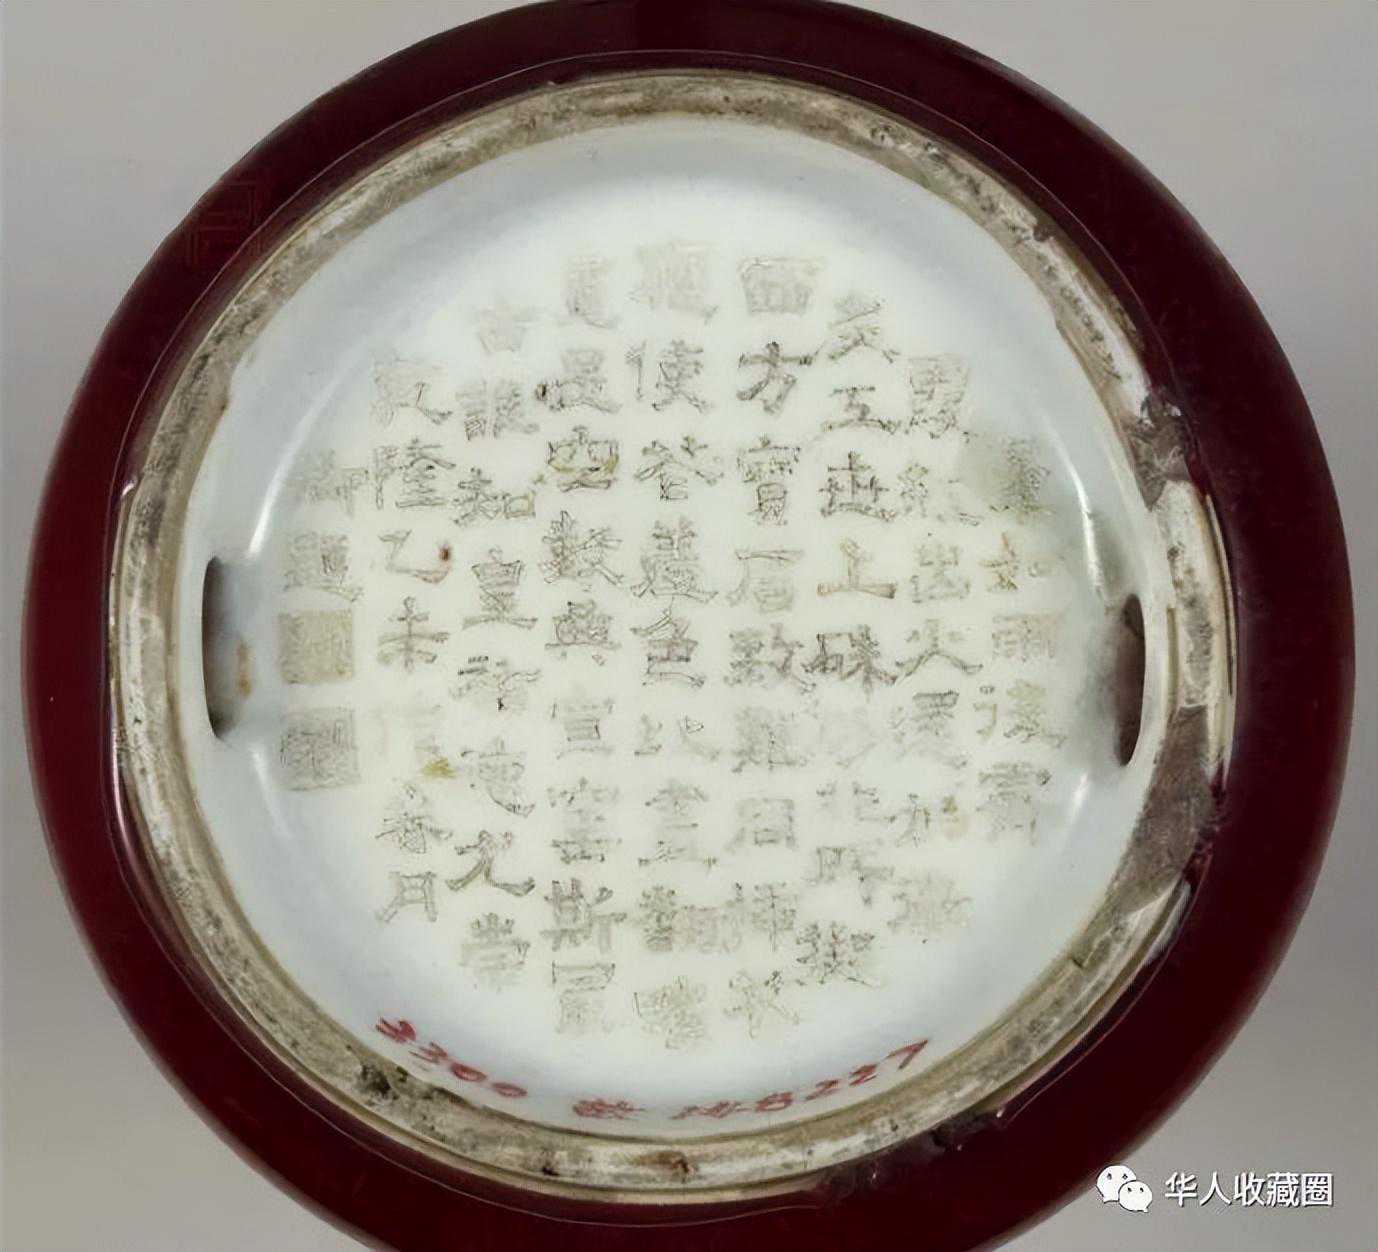 暈如雨後霽
霞紅出火還加微
炙工世上硃砂非所擬
西方寶石致難同插花
應使花羞色比畫翻嗤
畫是空數典宣窑斯最
古誰知皇祐德尤崇
乾隆乙未仲春月
御題
華人收藏圈